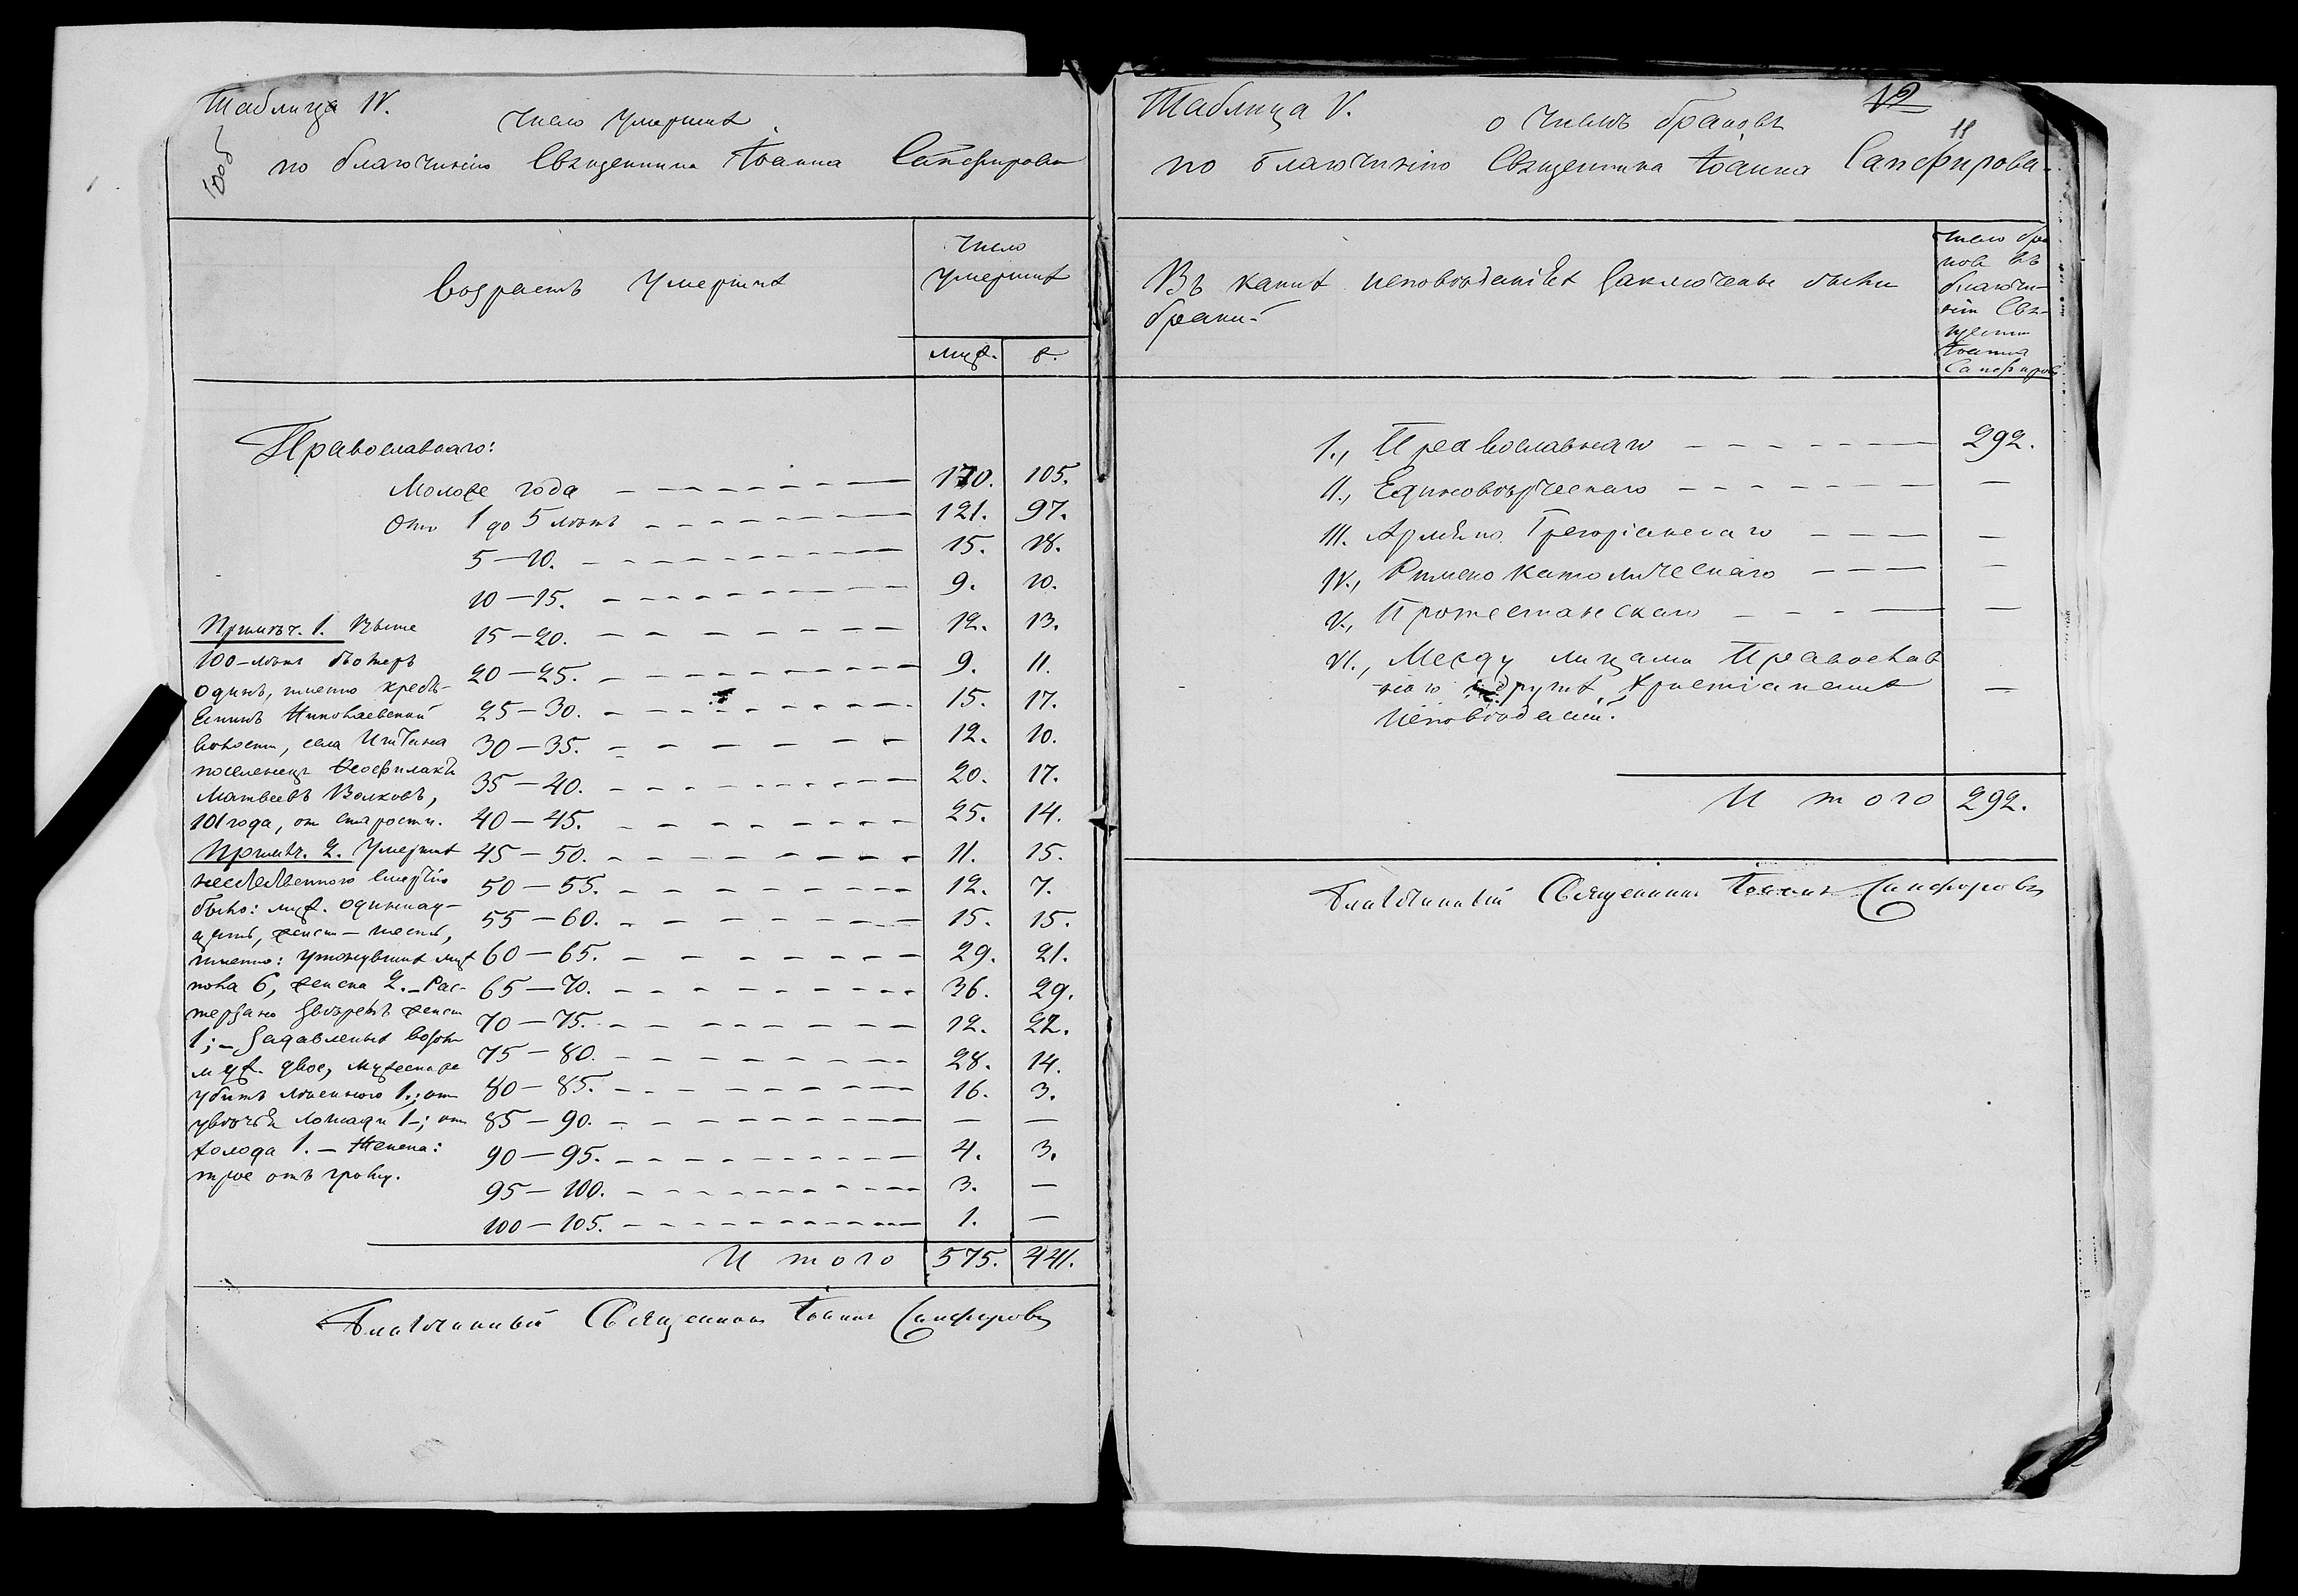 Таблица IV.
Число умершихъ
по благочинію Священника Іоанна Сапфирова
Возрастъ умершихъ
Число
умершихъ
муж. ж.
Православнаго:
Моложе года — 170. 105.
Отъ 1 до 5 лѣтъ — 121. 97.
5—10. — 15. 18.
10—15. — 9. 10.
15—20. — 12. 13.
20—25. — 9. 11.
25—30. — 15. 17.
30—35. — 12. 10.
35—40. — 20. 17.
40—45. — 25. 14.
45—50. — 11. 15.
50—55. — 12. 7.
55—60. — 15. 15.
60—65. — 29. 21.
65—70. — 36. 29.
70—75. — 12. 22.
75—80. — 28. 14.
80—85. — 16. 3.
85—90. — — —
90—95. — 4. 3.
95—100. — 3. —
100—105. — 1. —
Итого 575. 441.
Примѣч. 1. Выше
100-лѣтъ былъ умеръ
одинъ, именно кресть-
янинъ Николаевской
волости, села
поселенецъ Феофилактъ
Матвеевъ Волковъ,
101 года, от старости.
Примѣч. 2. Умершихъ
неестественного смертію
было: муж. одиннад-
цать, женск — шесть,
именно: утонувшихъ муж
пола 6, женска 2. — Рас-
терзано звѣремъ женск
1; — задавленыхъ возом
муж. двое, мужескаго
убитъ 1.; от
лошади 1-; от
холода 1. — Женска:
трое отъ грозы.
Благочинный Священникъ Іоаннъ Сапфировъ
Таблица V.
12
11
о числѣ браковъ
по благочинію Священника Іоанна Сапфирова.
Въ какихъ исповѣданіяхъ заключены были
браки.
Число бра
ковъ въ
благочи-
ніи Свя-
щенни
Іоанна
Сапфиров
I., Православнаго — 292.
II., Единовѣрческаго — —
III. Армяно Грегоріанскаго — —
IV., Римско Католическаго — —
V., Протестанскаго — —
VI., Между лицами Православ
наго и другихъ Христіанскихъ —
исповѣданій.
Итого 292.
Благочинный Священникъ Іоаннъ Сапфировъ